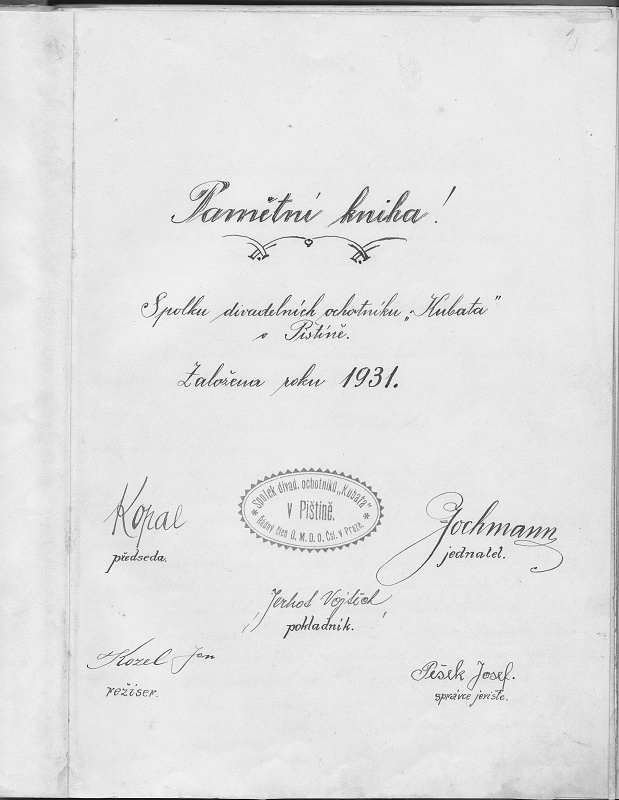 1)
Pamětní kniha!
Spolku divadelních ochotníku „Kubata"
v Pištíně.
Založena roku 1931.
Spolek divad. ochotníků „Kubata"
v Pištíně.
řádný člen Ú. M. D. O. Čsl. v Praze.
Kopal
předseda.
Jochmann
jednatel.
Jerhot Vojtěch
pokladník.
Kozel Jan
režiser.
Pešek Josef.
správce jeviště.